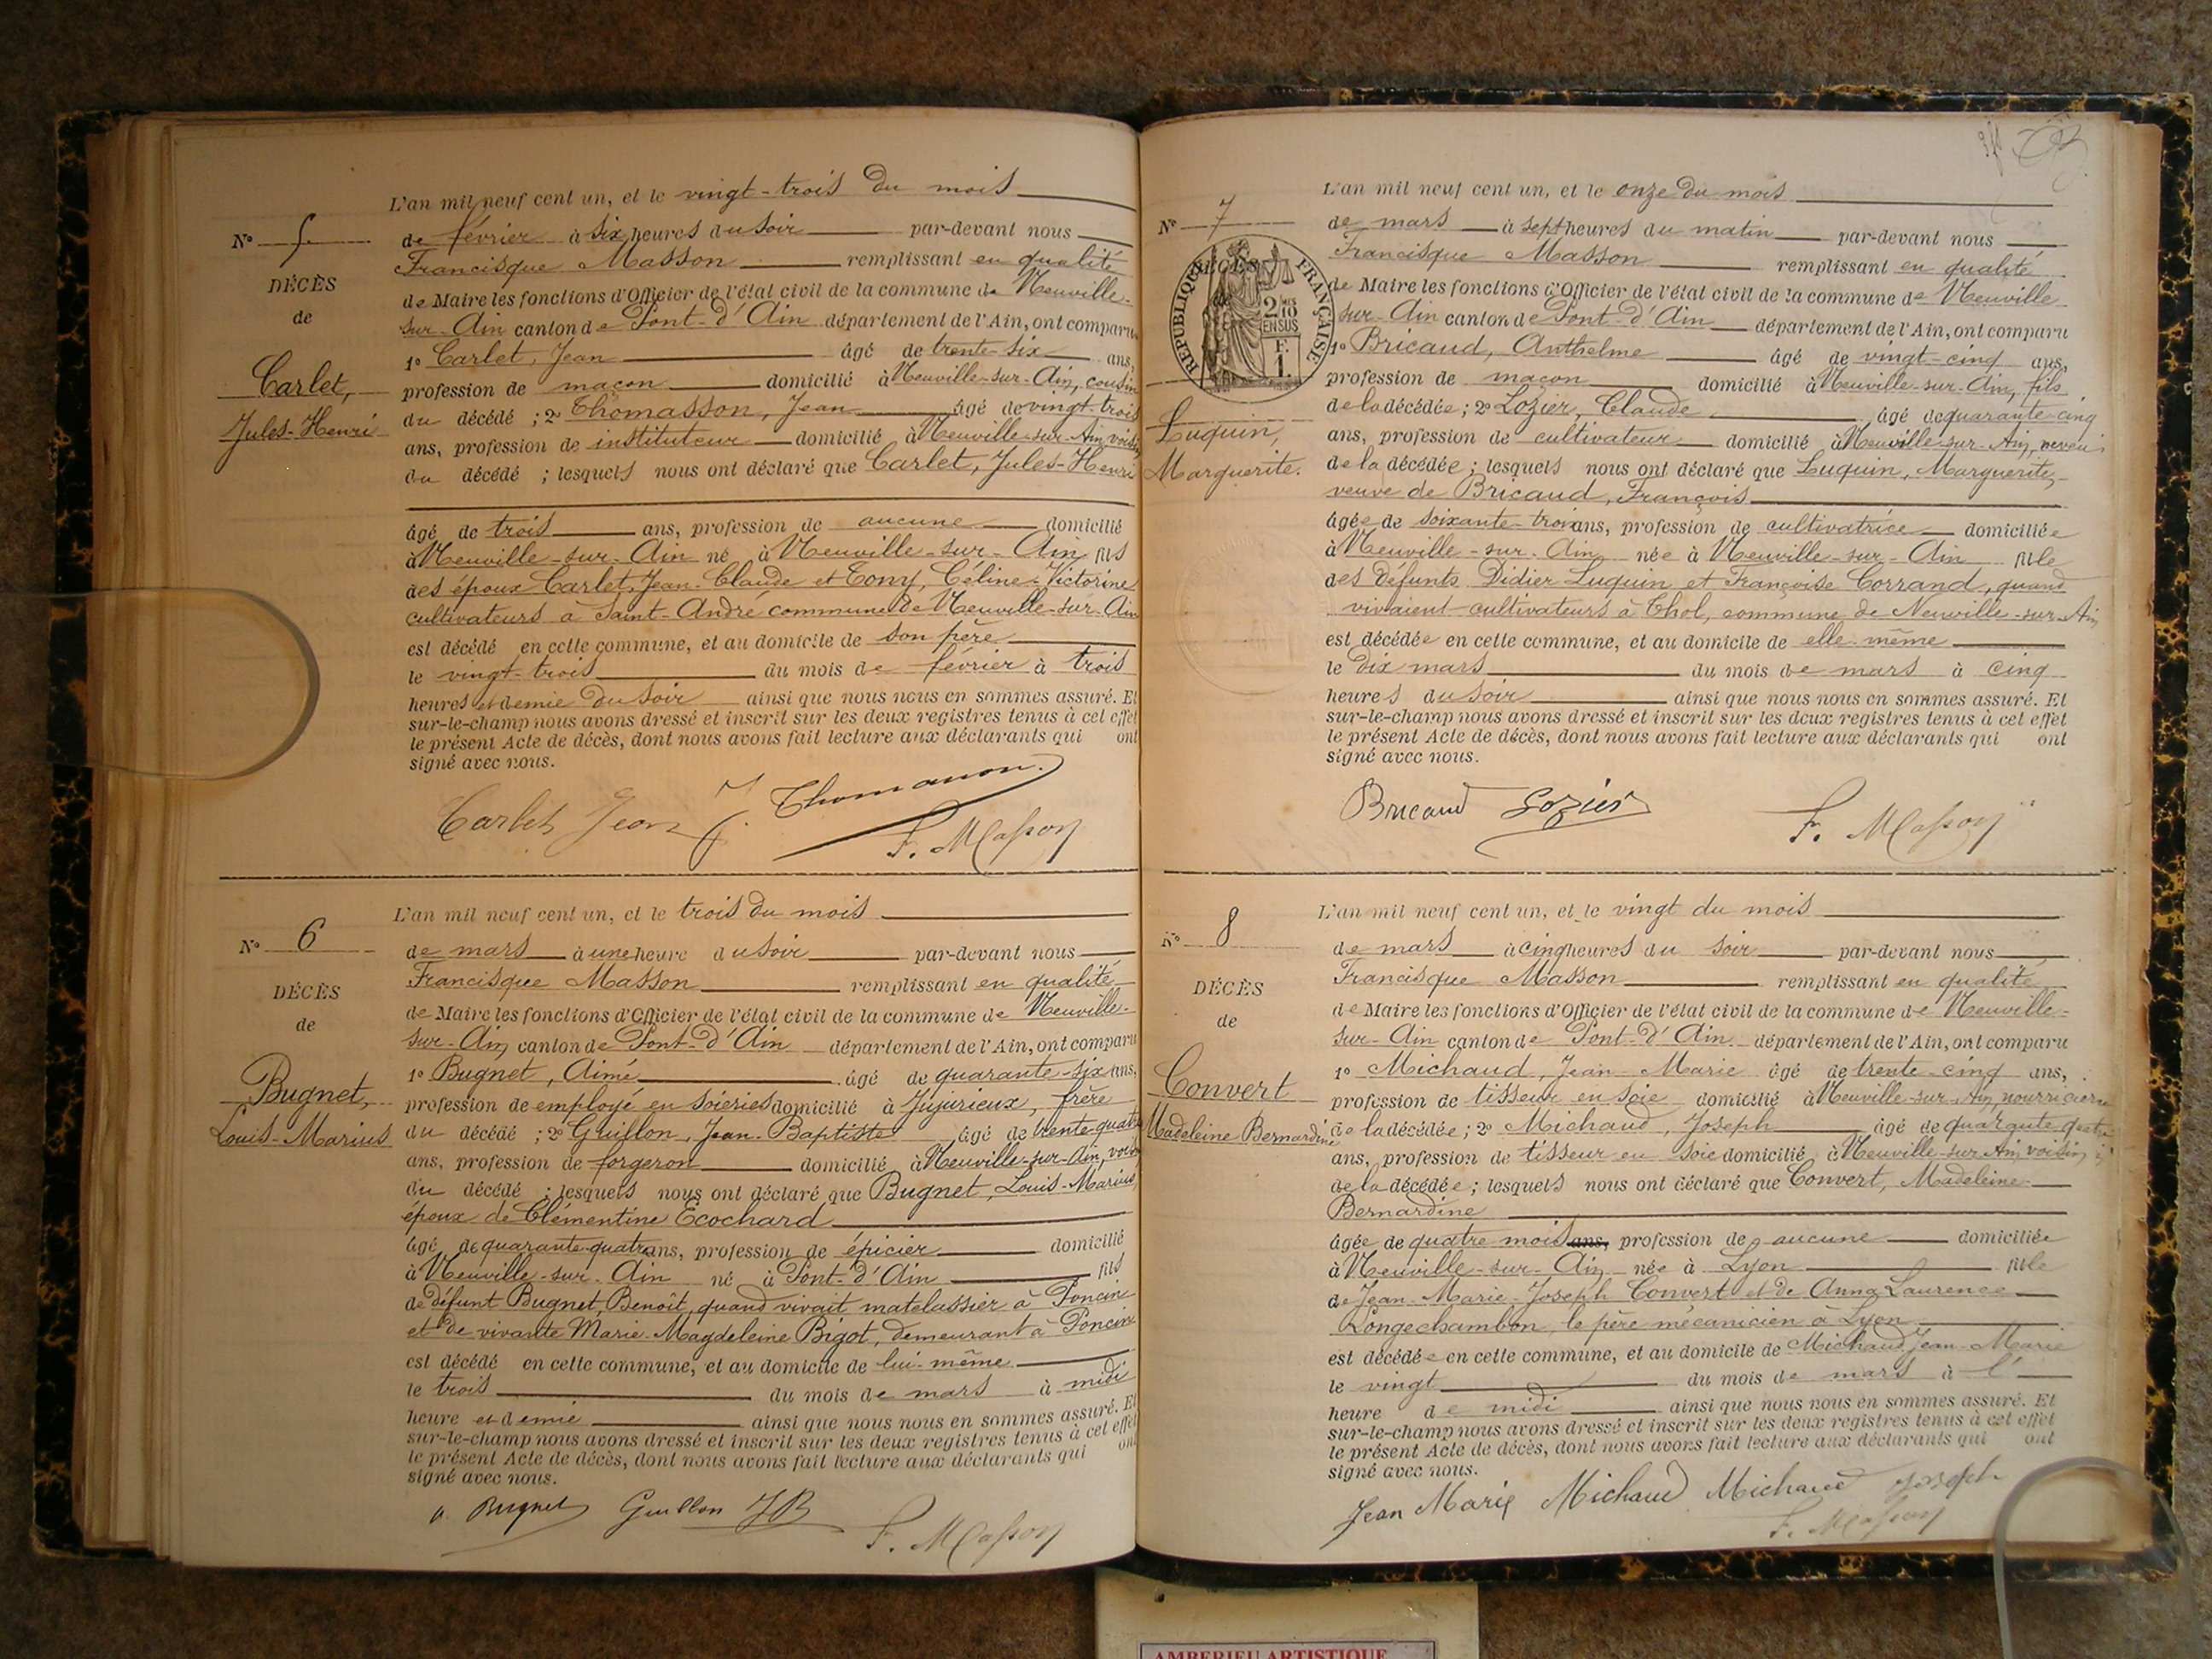 L'an mil neuf cent un, et le vingt-trois du mois
N° 5
de février à six heures du soir par-devant nous
Francisque Masson remplissant en qualité
DÉCÈS
de Maire les fonctions d'Officier de l'état civil de la commune de Neuville-
de
sur-Ain canton de Pont-d'Ain département de l'Ain, ont comparu
1° Carlet, Jean âgé de trente-six ans,
Carlet,
profession de maçon domicilié à Neuville-sur-Ain, cousin
Jules-Henri
du décédé ; 2° Thomasson, Jean âgé de vingt-trois
ans, profession de instituteur domicilié à Neuville-sur-Ain, voisin
du décédé ; lesquels nous ont déclaré que Carlet, Jules-Henri
âgé de trois ans, profession de aucune domicilié
à Neuville-sur-Ain né à Neuville-sur-Ain fils
des époux Carlet, Jean-Claude et Tony, Céline-Victorine
cultivateurs à Saint-André commune de Neuville-sur-Ain
est décédé en cette commune, et au domicile de son père
le vingt-trois du mois de février à trois
heures et demie du soir ainsi que nous nous en sommes assuré. Et
sur-le-champ nous avons dressé et inscrit sur les deux registres tenus à cet effet
le présent Acte de décès, dont nous avons fait lecture aux déclarants qui ont
signé avec nous.
Carlet Jean J. Thomasson
F. Masson
L'an mil neuf cent un, et le trois du mois
N° 6
de mars à une heure du soir par-devant nous
Francisque Masson remplissant en qualité
DÉCÈS
de Maire les fonctions d'Officier de l'état civil de la commune de Neuville-
de
sur-Ain canton de Pont-d'Ain département de l'Ain, ont comparu
1° Bugnet, Aimé âgé de quarante-six ans,
Bugnet,
profession de employé en soieries domicilié à Jujurieux, frère
Louis-Marius
du décédé ; 2° Guillon, Jean-Baptiste âgé de trente-quatre
ans, profession de forgeron domicilié à Neuville-sur-Ain, voisin
du décédé ; lesquels nous ont déclaré que Bugnet, Louis-Marius,
époux de Clémentine Ecochard
âgé de quarante-quatre ans, profession de épicier domicilié
à Neuville-sur-Ain né à Pont-d'Ain fils
de défunt Bugnet, Benoît, quand vivait matelassier à Poncin
et de vivante Marie-Magdeleine Bigot, demeurant à Poncin
est décédé en cette commune, et au domicile de lui-même
le trois du mois de mars à midi
heure et demie ainsi que nous nous en sommes assuré. Et
sur-le-champ nous avons dressé et inscrit sur les deux registres tenus à cet effet
le présent Acte de décès, dont nous avons fait lecture aux déclarants qui ont
signé avec nous.
A. Bugnet Guillon JB
F. Masson
L'an mil neuf cent un, et le onze du mois
N° 7
de mars à sept heures du matin par-devant nous
Francisque Masson remplissant en qualité
DÉCÈS
RÉPUBLIQUE FRANÇAISE
2/10 EN SUS
F. 1.
de Maire les fonctions d'Officier de l'état civil de la commune de Neuville
sur-Ain canton de Pont-d'Ain département de l'Ain, ont comparu
1° Bricaud, Anthelme âgé de vingt-cinq ans,
profession de maçon domicilié à Neuville-sur-Ain, fils
Luquin,
de la décédée ; 2° Lozier, Claude âgé de quarante-cinq
ans, profession de cultivateur domicilié à Neuville-sur-Ain, neveu
Marguerite.
de la décédée ; lesquels nous ont déclaré que Luquin, Marguerite,
veuve de Bricaud, François
âgée de soixante-trois ans, profession de cultivatrice domiciliée
à Neuville-sur-Ain née à Neuville-sur-Ain fille
des défunts Didier Luquin et Françoise Corrand, quand
vivaient cultivateurs à Thol, commune de Neuville-sur-Ain
est décédée en cette commune, et au domicile de elle-même
le dix mars du mois de mars à cinq
heures du soir ainsi que nous nous en sommes assuré. Et
sur-le-champ nous avons dressé et inscrit sur les deux registres tenus à cet effet
le présent Acte de décès, dont nous avons fait lecture aux déclarants qui ont
signé avec nous.
Bricaud Lozier F. Masson
L'an mil neuf cent un, et le vingt du mois
N° 8
de mars à cinq heures du soir par-devant nous
Francisque Masson remplissant en qualité
DÉCÈS
de Maire les fonctions d'Officier de l'état civil de la commune de Neuville-
de
sur-Ain canton de Pont-d'Ain département de l'Ain, ont comparu
1° Michaud, Jean Marie âgé de trente-cinq ans,
Convert
profession de tisseur en soie domicilié à Neuville-sur-Ain, nourricier
Madeleine Bernardine
de la décédée ; 2° Michaud, Joseph âgé de quarante-quatre
ans, profession de tisseur en soie domicilié à Neuville-sur-Ain, voisin
de la décédée ; lesquels nous ont déclaré que Convert, Madeleine-
Bernardine
âgée de quatre mois ans, profession de aucune domiciliée
à Neuville-sur-Ain née à Lyon fille
de Jean-Marie-Joseph Convert et de Anna Laurence
Longechambon, le père mécanicien à Lyon
est décédée en cette commune, et au domicile de Michaud Jean-Marie
le vingt du mois de mars à l'
heure de midi ainsi que nous nous en sommes assuré. Et
sur-le-champ nous avons dressé et inscrit sur les deux registres tenus à cet effet
le présent Acte de décès, dont nous avons fait lecture aux déclarants qui ont
signé avec nous.
Jean Marie Michaud Michaud Joseph
F. Masson
AMBERIEU ARTISTIQUE